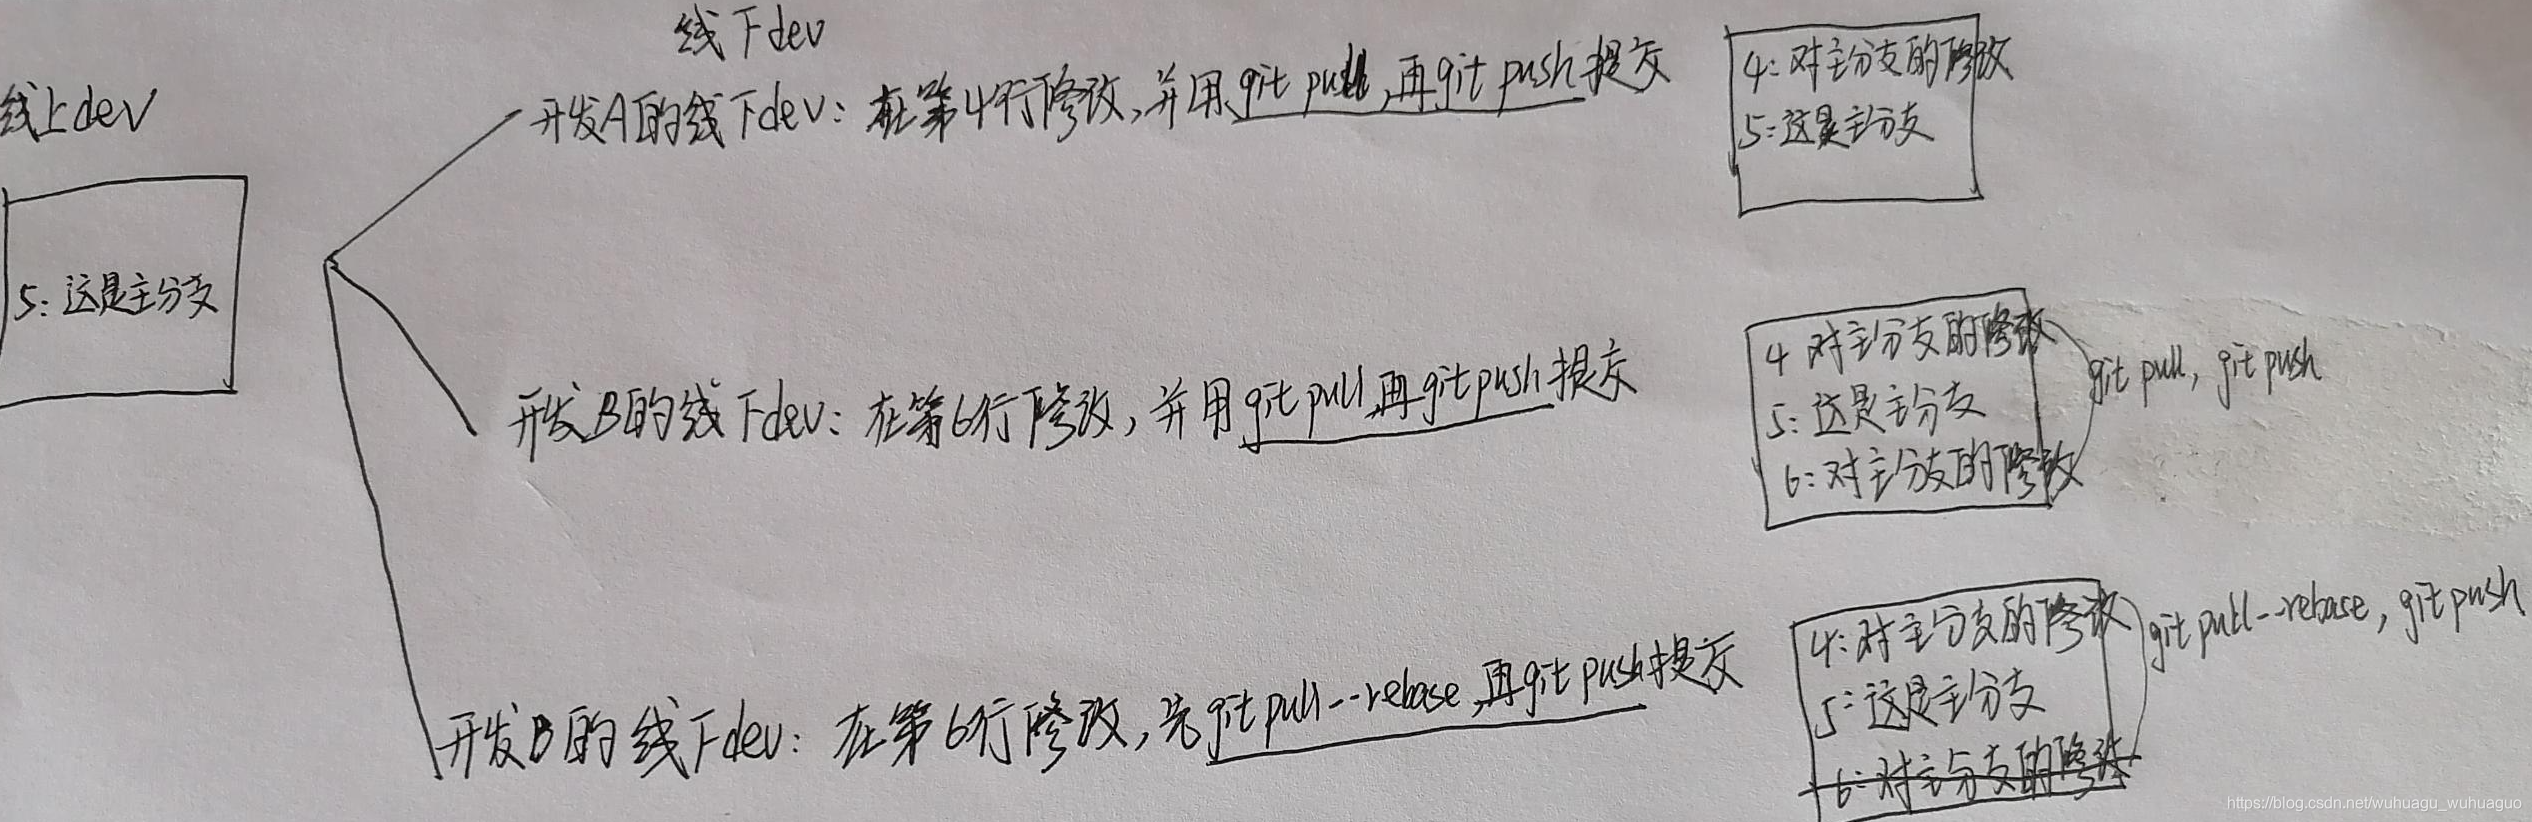 线下dev
线上dev
开发A的线下dev：在第4行修改，并用git pull，再git push提交
4：对主分支的修改
5：这是主分支
5：这是主分支
开发B的线下dev：在第6行修改，并用git pull，再git push提交
4 对主分支的修改
5：这是主分支
6：对主分支的修改
git pull，git push
开发B的线下dev：在第6行修改，先git pull--rebase，再git push提交
4：对主分支的修改
5：这是主分支
6：对主分支的修改
git pull--rebase，git push
https://blog.csdn.net/wuhuagu_wuhuaguo